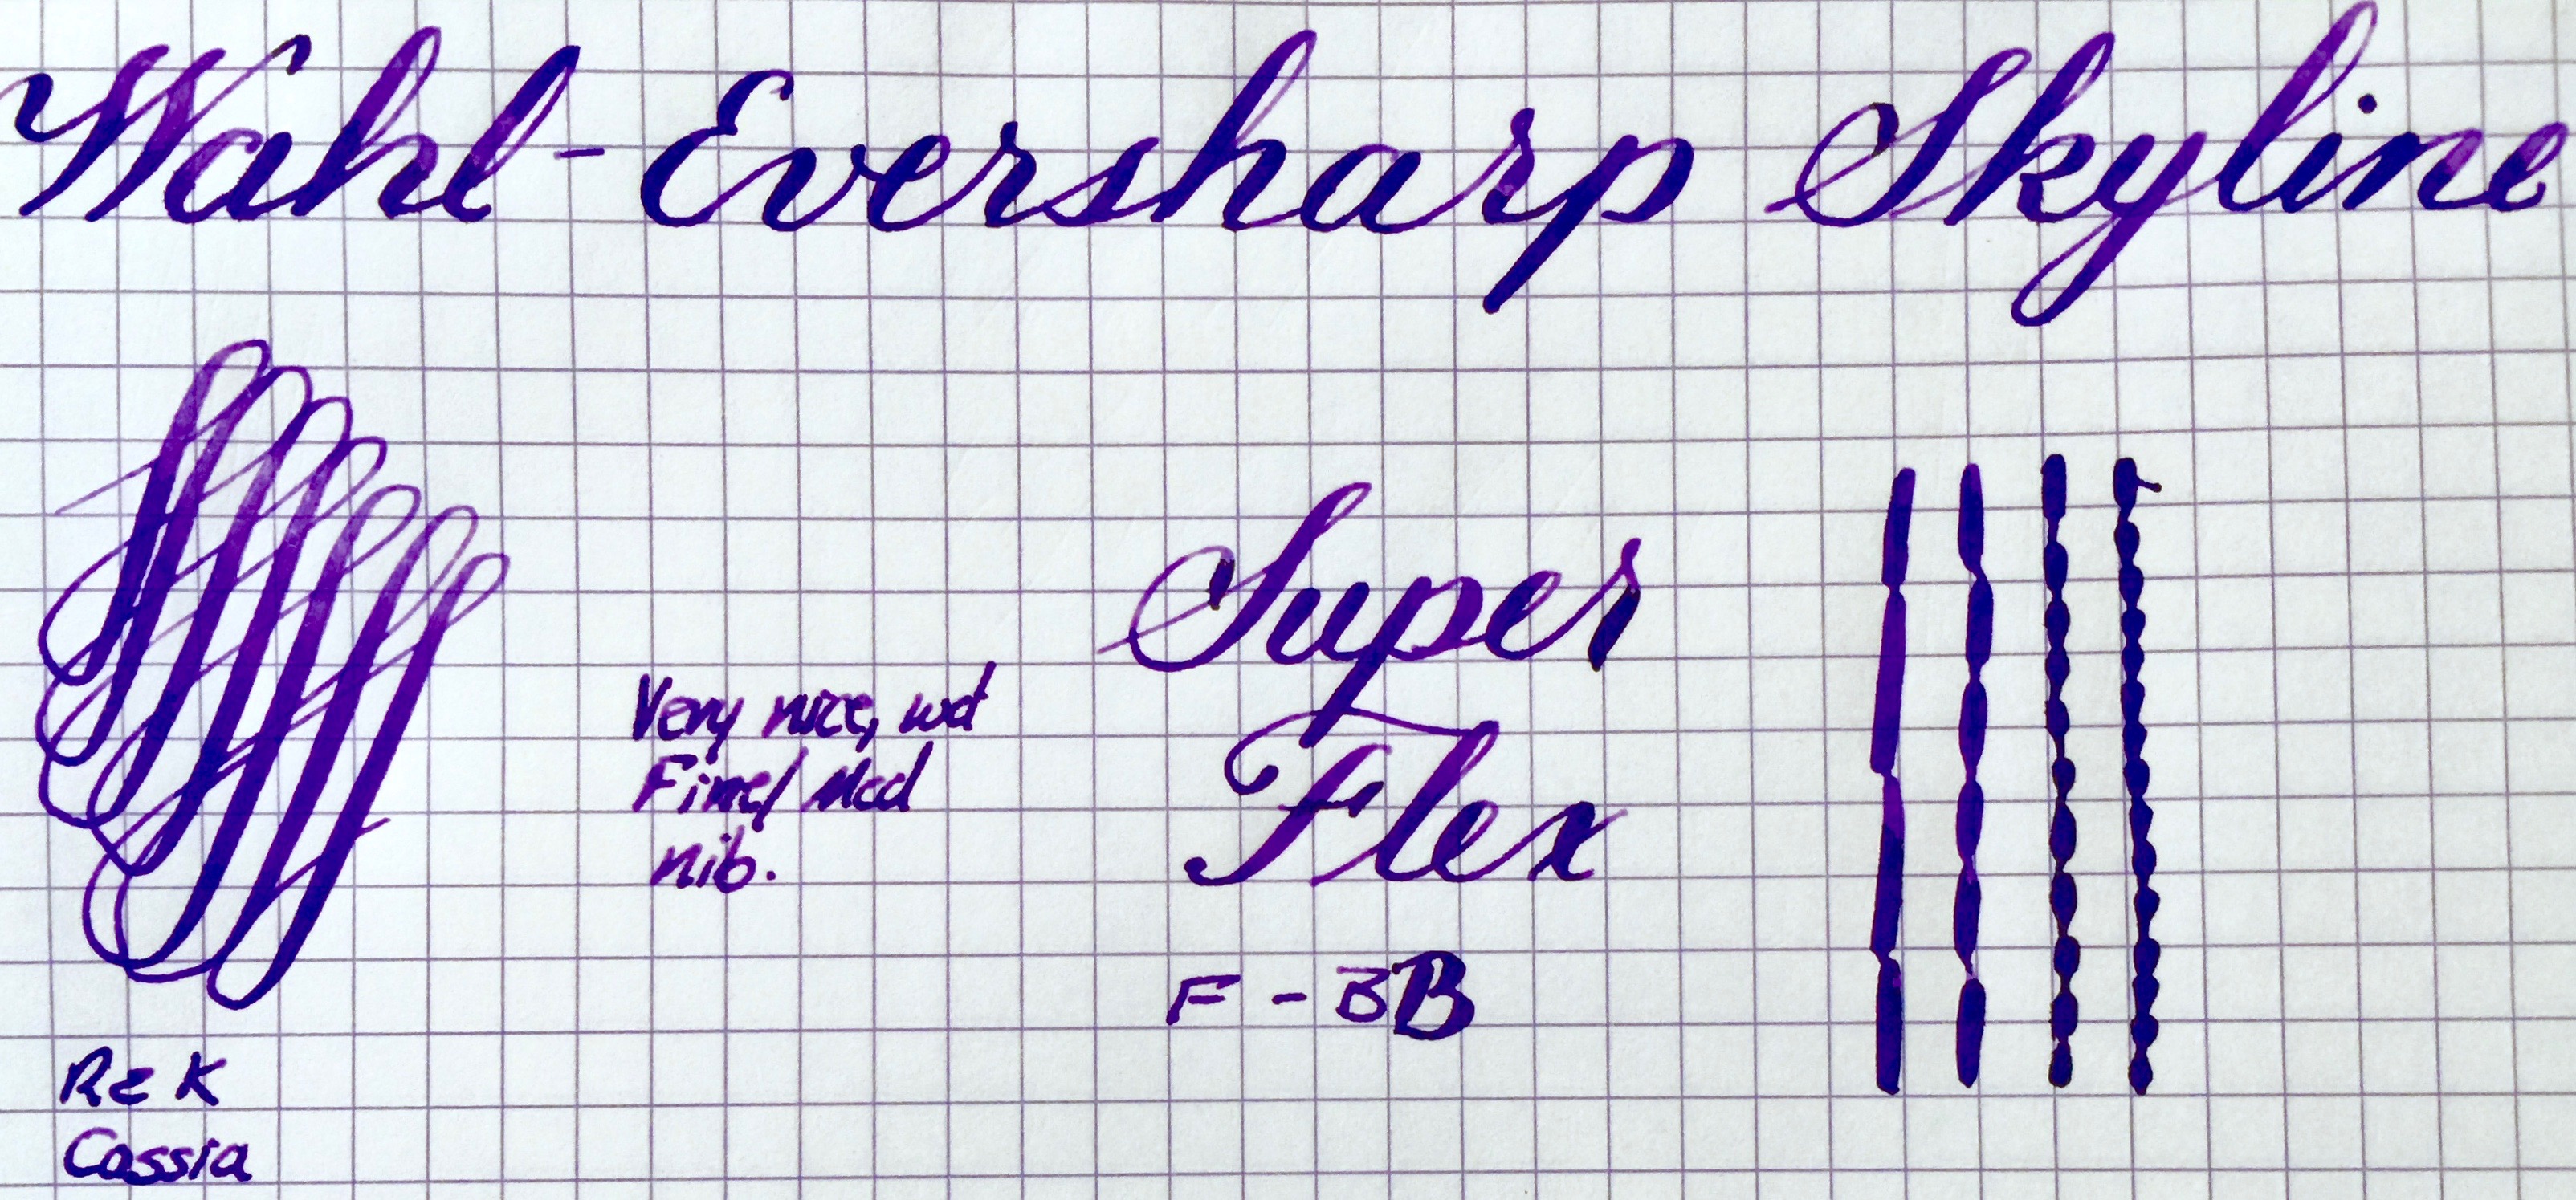 Wahl-Eversharp Skyline
Super
Very nice, wet
Fine/Med
nib.
Flex
F - BB
R & K
Cassia